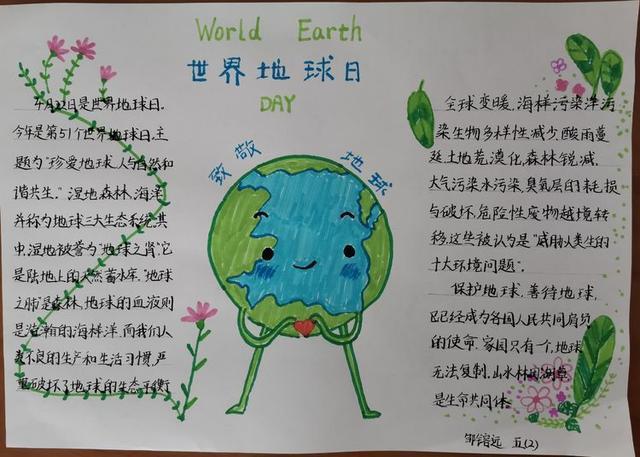 World Earth
世界地球日
DAY
致敬 地球
4月22日是世界地球日,
今年是第51个世界地球日,主
题为"珍爱地球,人与自然和
谐共生。"湿地森林、海洋
并称为地球三大生态系统,其
中,湿地被誉为"地球之肾"它
是陆地上的天然蓄水库,"地球
之肺"是森林,地球的血液则
是浩瀚的海林洋,而我们人
类不良的生产和生活习惯,严
重破坏了地球的生态平衡
全球变暖、海样污染洋污
染生物多样性减少,酸雨蔓
延土地荒漠化森林锐减、
大气污染水污染、臭氧层的耗损
与破坏,危险性废物越境转
移,这些被认为是"威胁人类生的
十大环境问题"。
保护地球,善待地球,
已已经成为各国人民共同肩负
的使命,家园只有一个,地球
无法复制,山水林田湖草
是生命共同体
邹镕远 五(2)